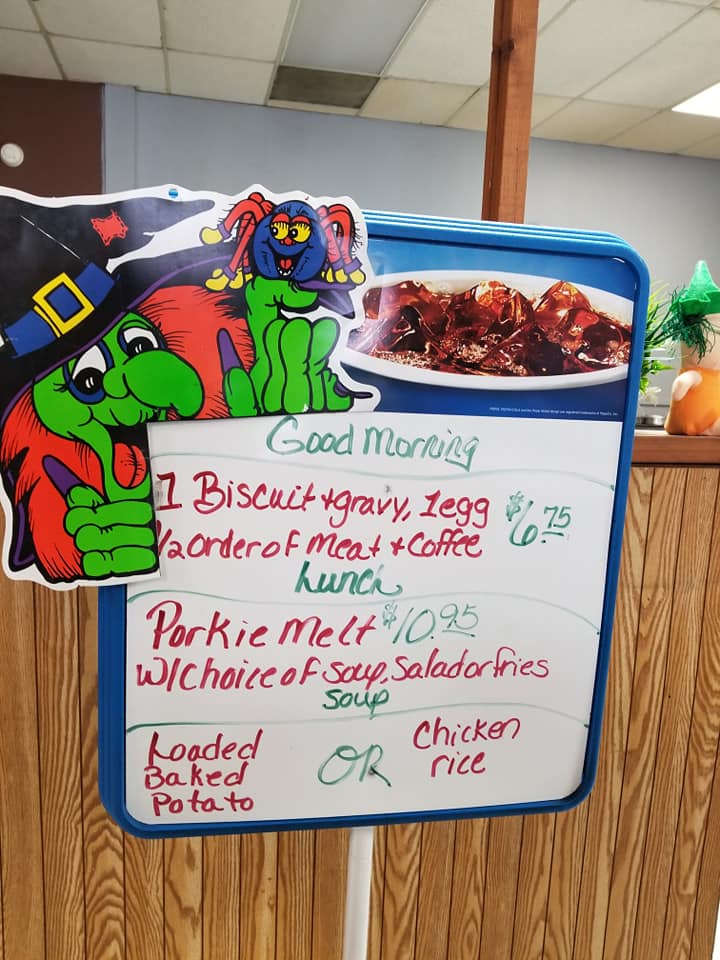 Good Morning
1 Biscuit + gravy, 1 egg $6.75
1/2 order of Meat + Coffee
Lunch
Porkie Melt $10.95
w/ Choice of soup, Salad or fries
soup
Loaded Baked Potato
OR
Chicken rice